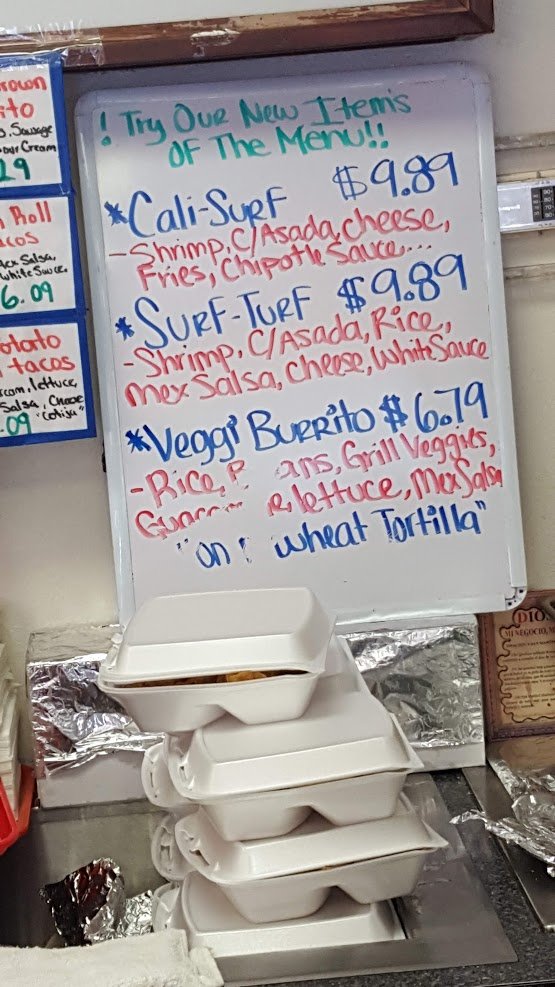 ! Try Our New Items
Of The Menu!!
*Cali-Surf $9.89
-Shrimp, C/Asada, cheese,
Fries, Chipotle Sauce...
*Surf-Turf $9.89
-Shrimp, C/Asada, Rice,
Mex Salsa, Cheese, White Sauce
*Veggi Burrito $6.79
-Rice, B ans, Grill Veggies,
Guacam e, lettuce, Mex Salsa
"on wheat Tortilla"
rown
ito
, Sausage
our Cream
29
Roll
acos
Mex Salsa,
White Sauce.
6.09
otato
tacos
lettuce,
Salsa, Cheese
"Cotija"
.09
DIOS
MI NEGOCIO,